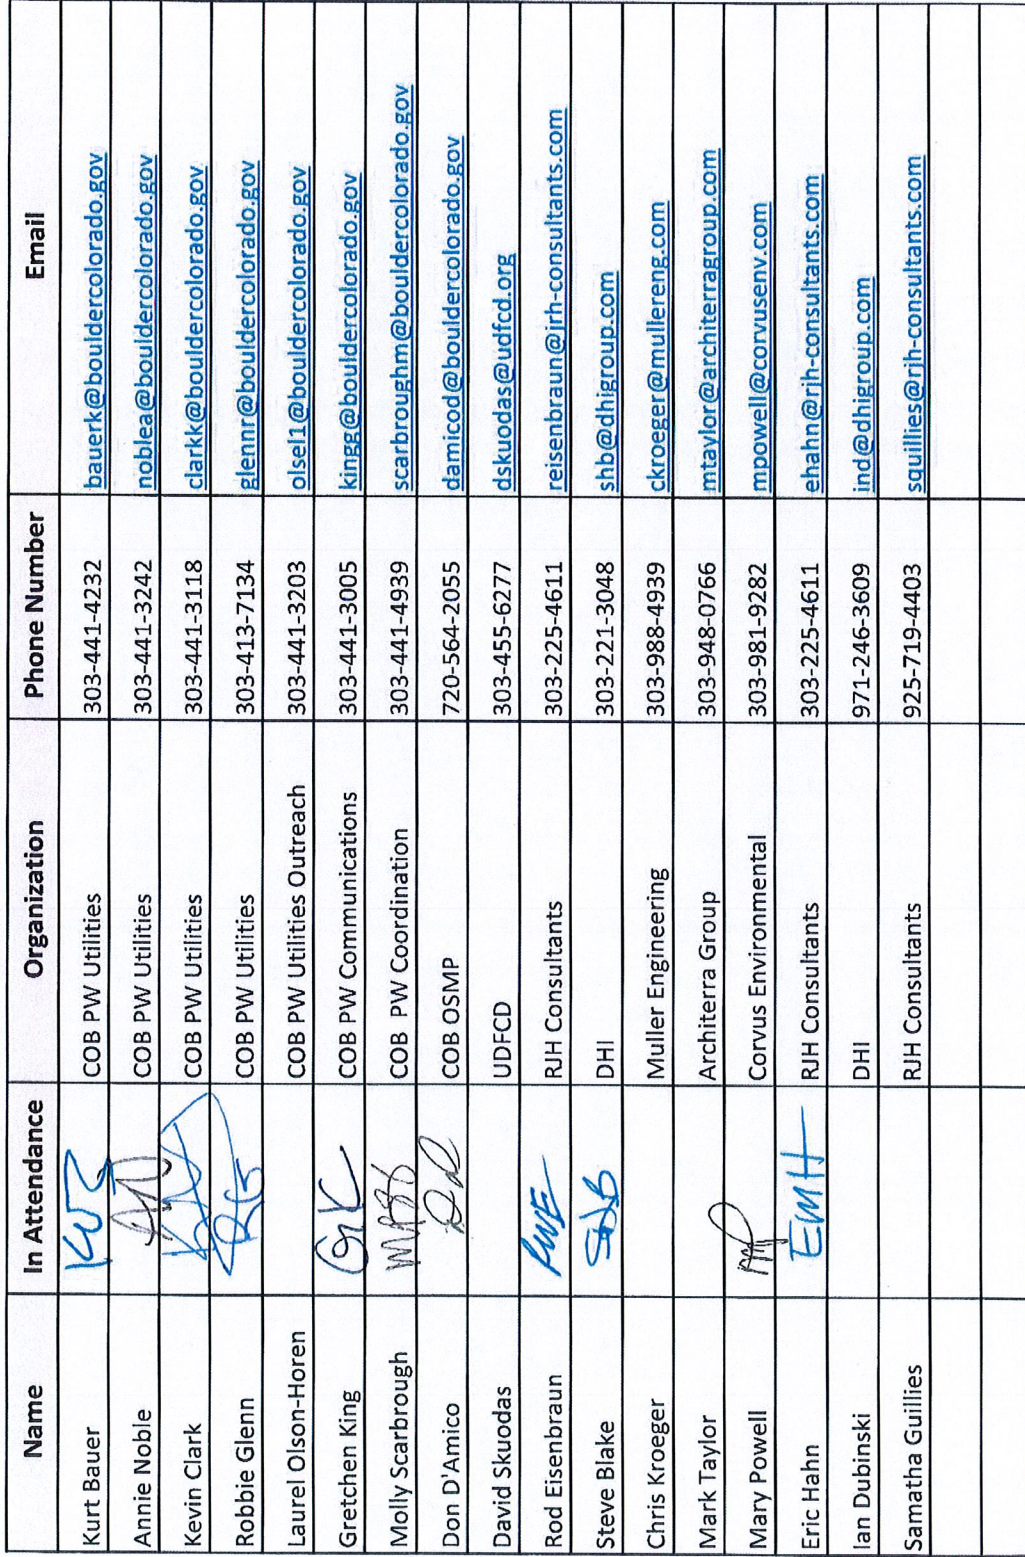 Name In Attendance Organization Phone Number Email
Kurt Bauer COB PW Utilities 303-441-4232 bauerk@bouldercolorado.gov
Annie Noble COB PW Utilities 303-441-3242 noblea@bouldercolorado.gov
Kevin Clark COB PW Utilities 303-441-3118 clarkk@bouldercolorado.gov
Robbie Glenn COB PW Utilities 303-413-7134 glennr@bouldercolorado.gov
Laurel Olson-Horen COB PW Utilities Outreach 303-441-3203 olsel1@bouldercolorado.gov
Gretchen King GK COB PW Communications 303-441-3005 kingg@bouldercolorado.gov
Molly Scarbrough COB PW Coordination 303-441-4939 scarbroughm@bouldercolorado.gov
Don D'Amico COB OSMP 720-564-2055 damicod@bouldercolorado.gov
David Skuodas UDFCD 303-455-6277 dskuodas@udfcd.org
Rod Eisenbraun RWE RJH Consultants 303-225-4611 reisenbraun@jrh-consultants.com
Steve Blake DHI 303-221-3048 shb@dhigroup.com
Chris Kroeger Muller Engineering 303-988-4939 ckroeger@mullereng.com
Mark Taylor Architerra Group 303-948-0766 mtaylor@architerragroup.com
Mary Powell Corvus Environmental 303-981-9282 mpowell@corvusenv.com
Eric Hahn EMH RJH Consultants 303-225-4611 ehahn@rjh-consultants.com
Ian Dubinski DHI 971-246-3609 ind@dhigroup.com
Samatha Guillies RJH Consultants 925-719-4403 squillies@rjh-consultants.com